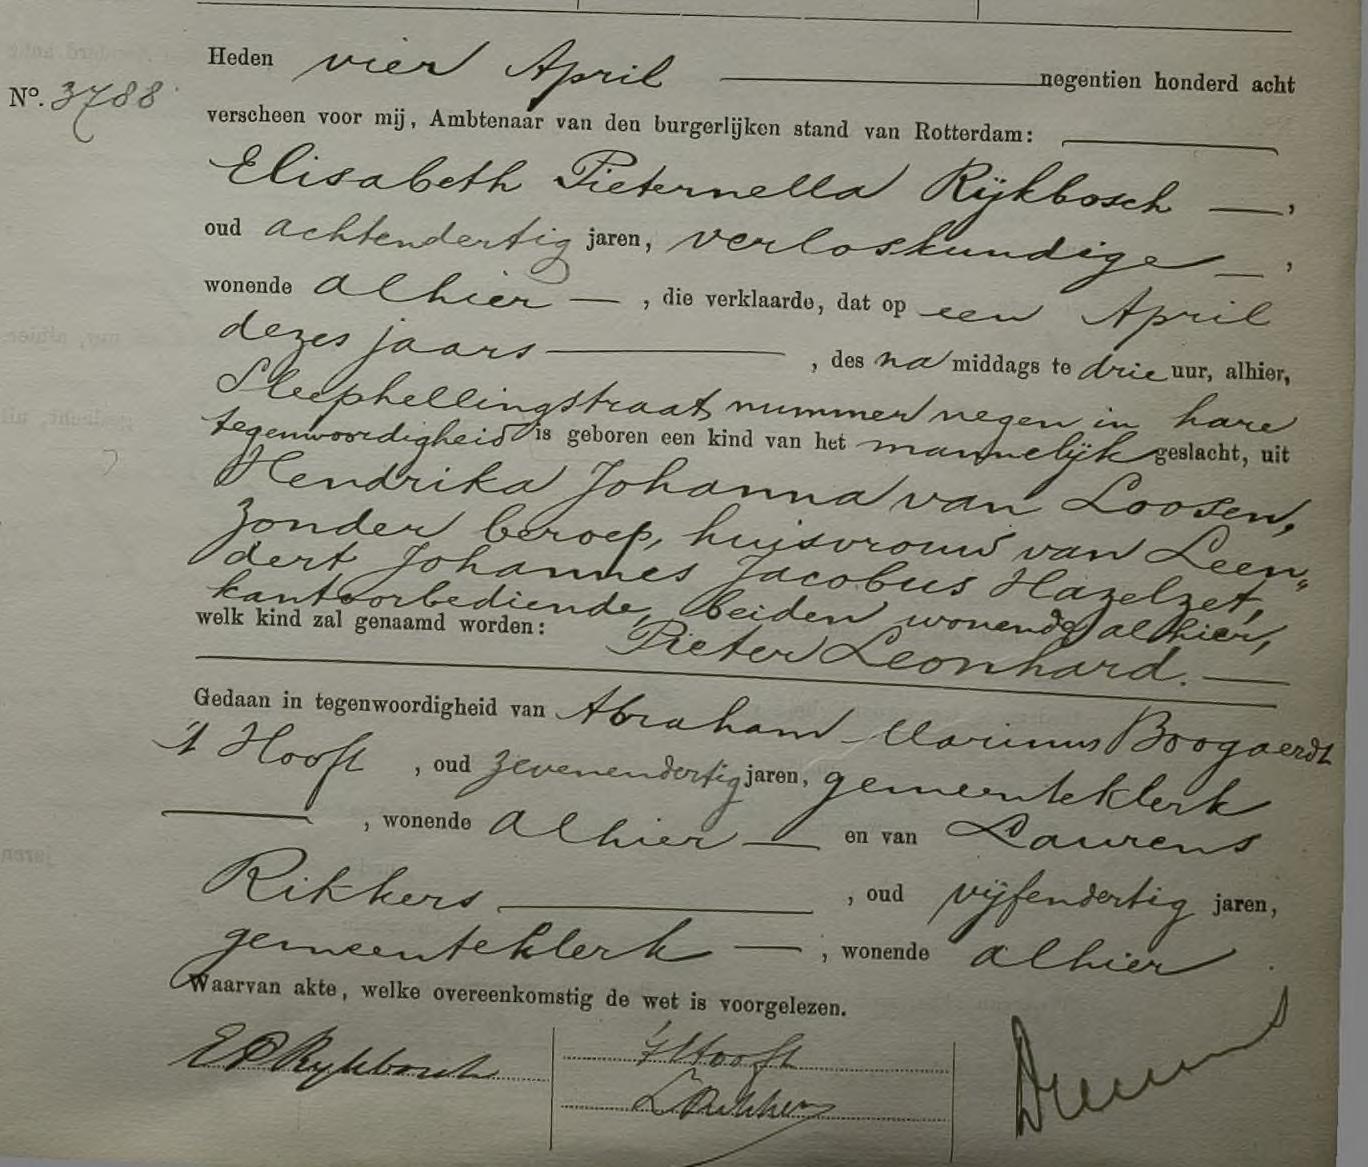 Heden vier April negentien honderd acht
No. 3788
verscheen voor mij, Ambtenaar van den burgerlijken stand van Rotterdam:
Elisabeth Pieternella Rijkbosch — ,
oud achtendertig jaren, verloskundige — ,
wonende alhier — , die verklaarde, dat op een April
dezes jaars — , des namiddags te drie uur, alhier,
Sleephellingstraat nummer negen in hare
tegenwoordigheid is geboren een kind van het mannelijk geslacht, uit
Hendrika Johanna van Loosen,
zonder beroep, huisvrouw van Leen„
dert Johannes Jacobus Hazelzet,
kantoorbediende, beiden wonende alhier,
welk kind zal genaamd worden: Pieter Leonhard. —
Gedaan in tegenwoordigheid van Abraham Marinus Boogaerdt
't Hooft , oud zevenendertig jaren, gemeenteklerk
— , wonende alhier — en van Laurens
Rikkers — , oud vijfendertig jaren,
gemeenteklerk — , wonende alhier .
Waarvan akte, welke overeenkomstig de wet is voorgelezen.
E P Rijkbosch
't Hooft
L Rikkers